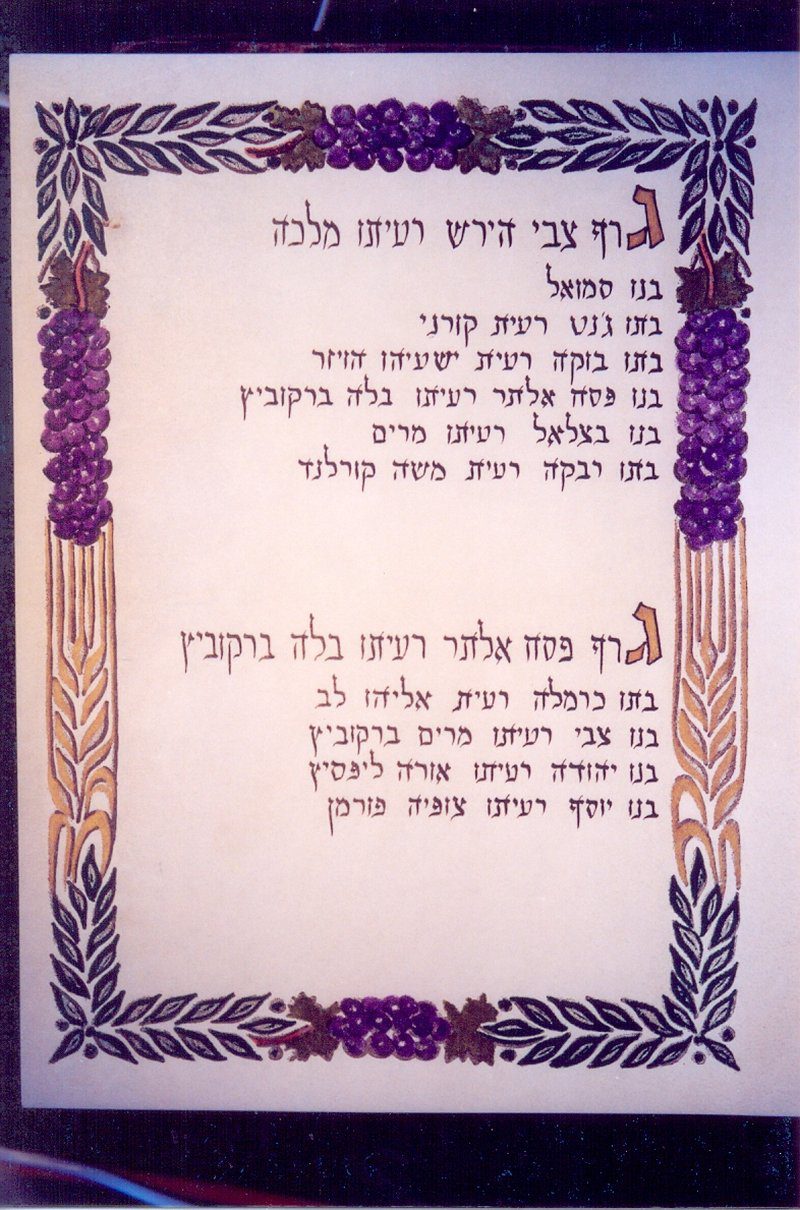 גרף צבי הירש רעיתו מלכה
בנו סמואל
בתו ג'נט רעית קורני
בתו בוקה רעית ישעיהו הויזר
בנו פסח אלתר רעיתו בלה ברקוביץ
בנו בצלאל רעיתו מרים
בתו רבקה רעית משה קורלנד
גרף פסח אלתר רעיתו בלה ברקוביץ
בתו כרמלה רעית אליהו לב
בנו צבי רעיתו מרים ברקוביץ
בנו יהודה רעיתו אורה ליפסיץ
בנו יוסף רעיתו צופיה פורמן